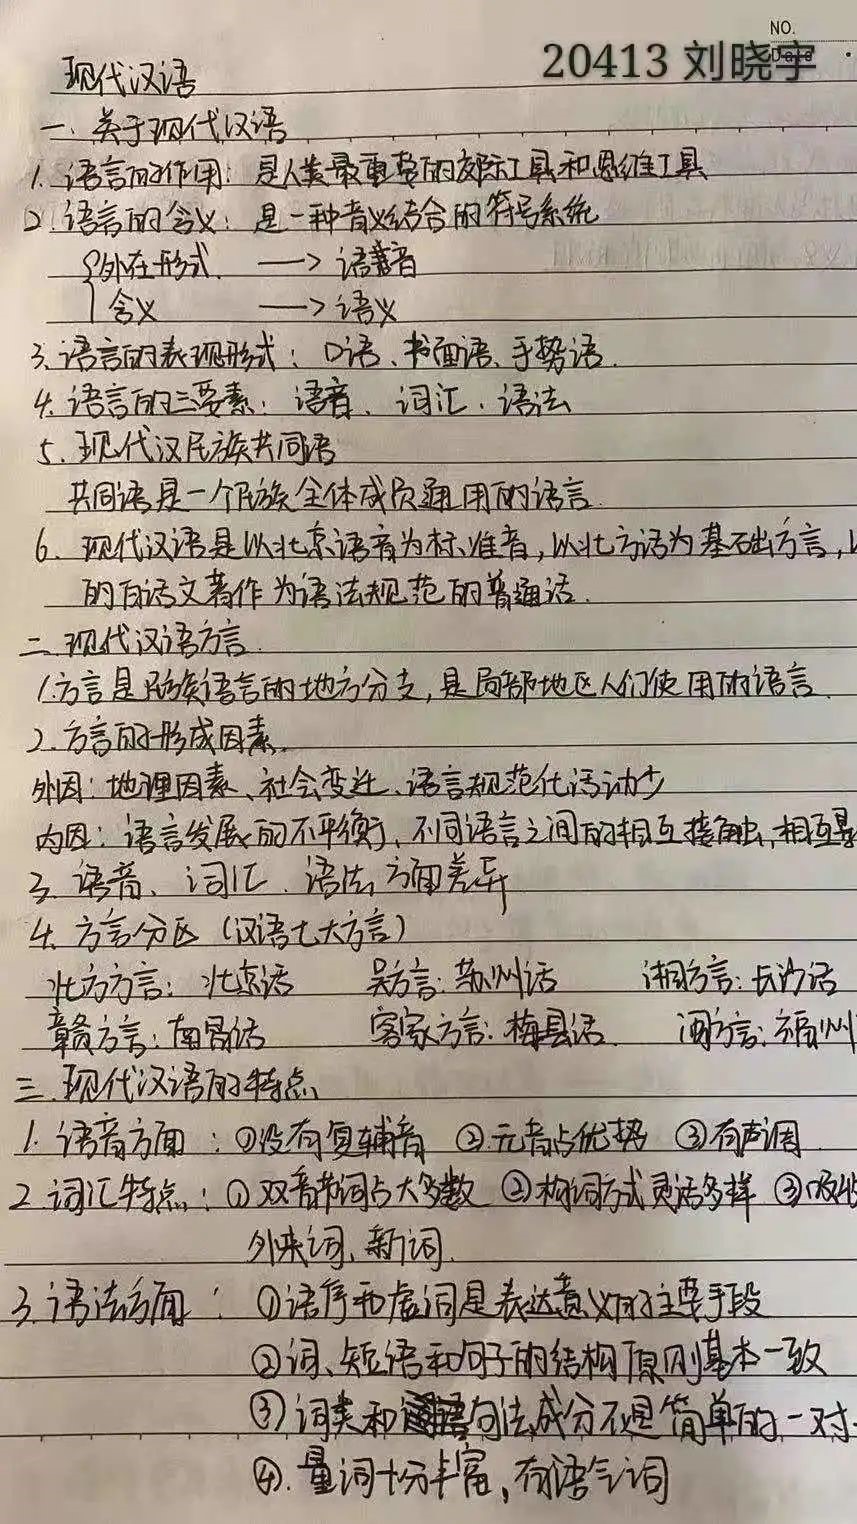 NO.
Date
20413 刘晓宇
现代汉语
一. 关于现代汉语
1. 语言的作用: 是人类最重要的交际工具和思维工具
2. 语言的含义: 是一种音义结合的符号系统
外在形式. —> 语音
含义 —> 语义
3. 语言的表现形式: 口语、书面语、手势语.
4. 语言的三要素: 语音、词汇、语法
5. 现代汉民族共同语
共同语是一个民族全体成员通用的语言.
6. 现代汉语是以北京语音为标准音, 以北方话为基础方言,
的白话文著作为语法规范的普通话.
二. 现代汉语方言.
1.方言是民族语言的地方分支, 是局部地区人们使用的语言.
2. 方言的形成因素.
外因: 地理因素、社会变迁、语言规范化活动少
内因: 语言发展的不平衡、不同语言之间的相互接触, 相互
3. 语音、词汇、语法方面差异
4. 方言分区 (汉语七大方言)
北方方言: 北京话 吴方言: 苏州话 湘方言: 长沙话
赣方言: 南昌话 客家方言: 梅县话. 闽方言: 福州
三. 现代汉语的特点
1. 语音方面: ①没有复辅音 ②元音占优势 ③有声调
2. 词汇特点: ①双音节词占大多数 ②构词方式灵活多样 ③吸
外来词、新词.
3. 语法方面: ①语序和虚词是表达意义的主要手段
②词、短语和句子的结构原则基本一致
③词类和句法成分不是简单的一对
④. 量词十分丰富, 有语气词